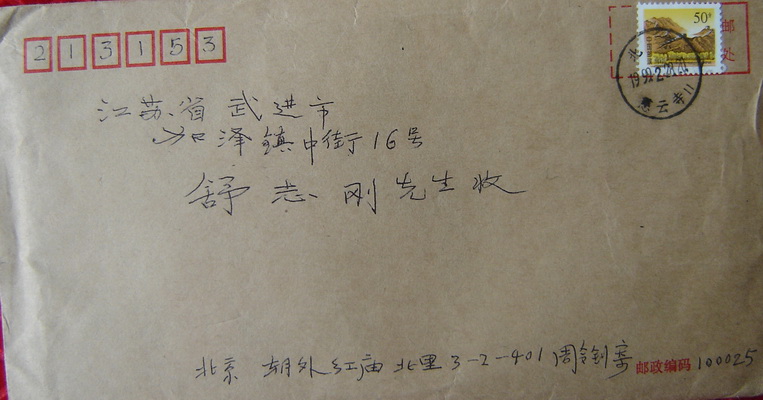 213153
50分
邮
处
北京
江苏省武进市
泽镇中街16号
舒志刚先生收
北京 朝外红庙北里3-2-401 周令钊寄
邮政编码 100025